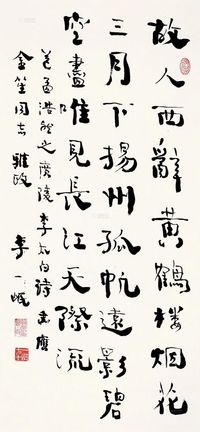 故人西辭黃鶴樓烟花
三月下揚州孤帆遠影碧
空盡唯見長江天際流
孟浩然之廣陵李太白詩書應
金笙同志雅政
李一氓